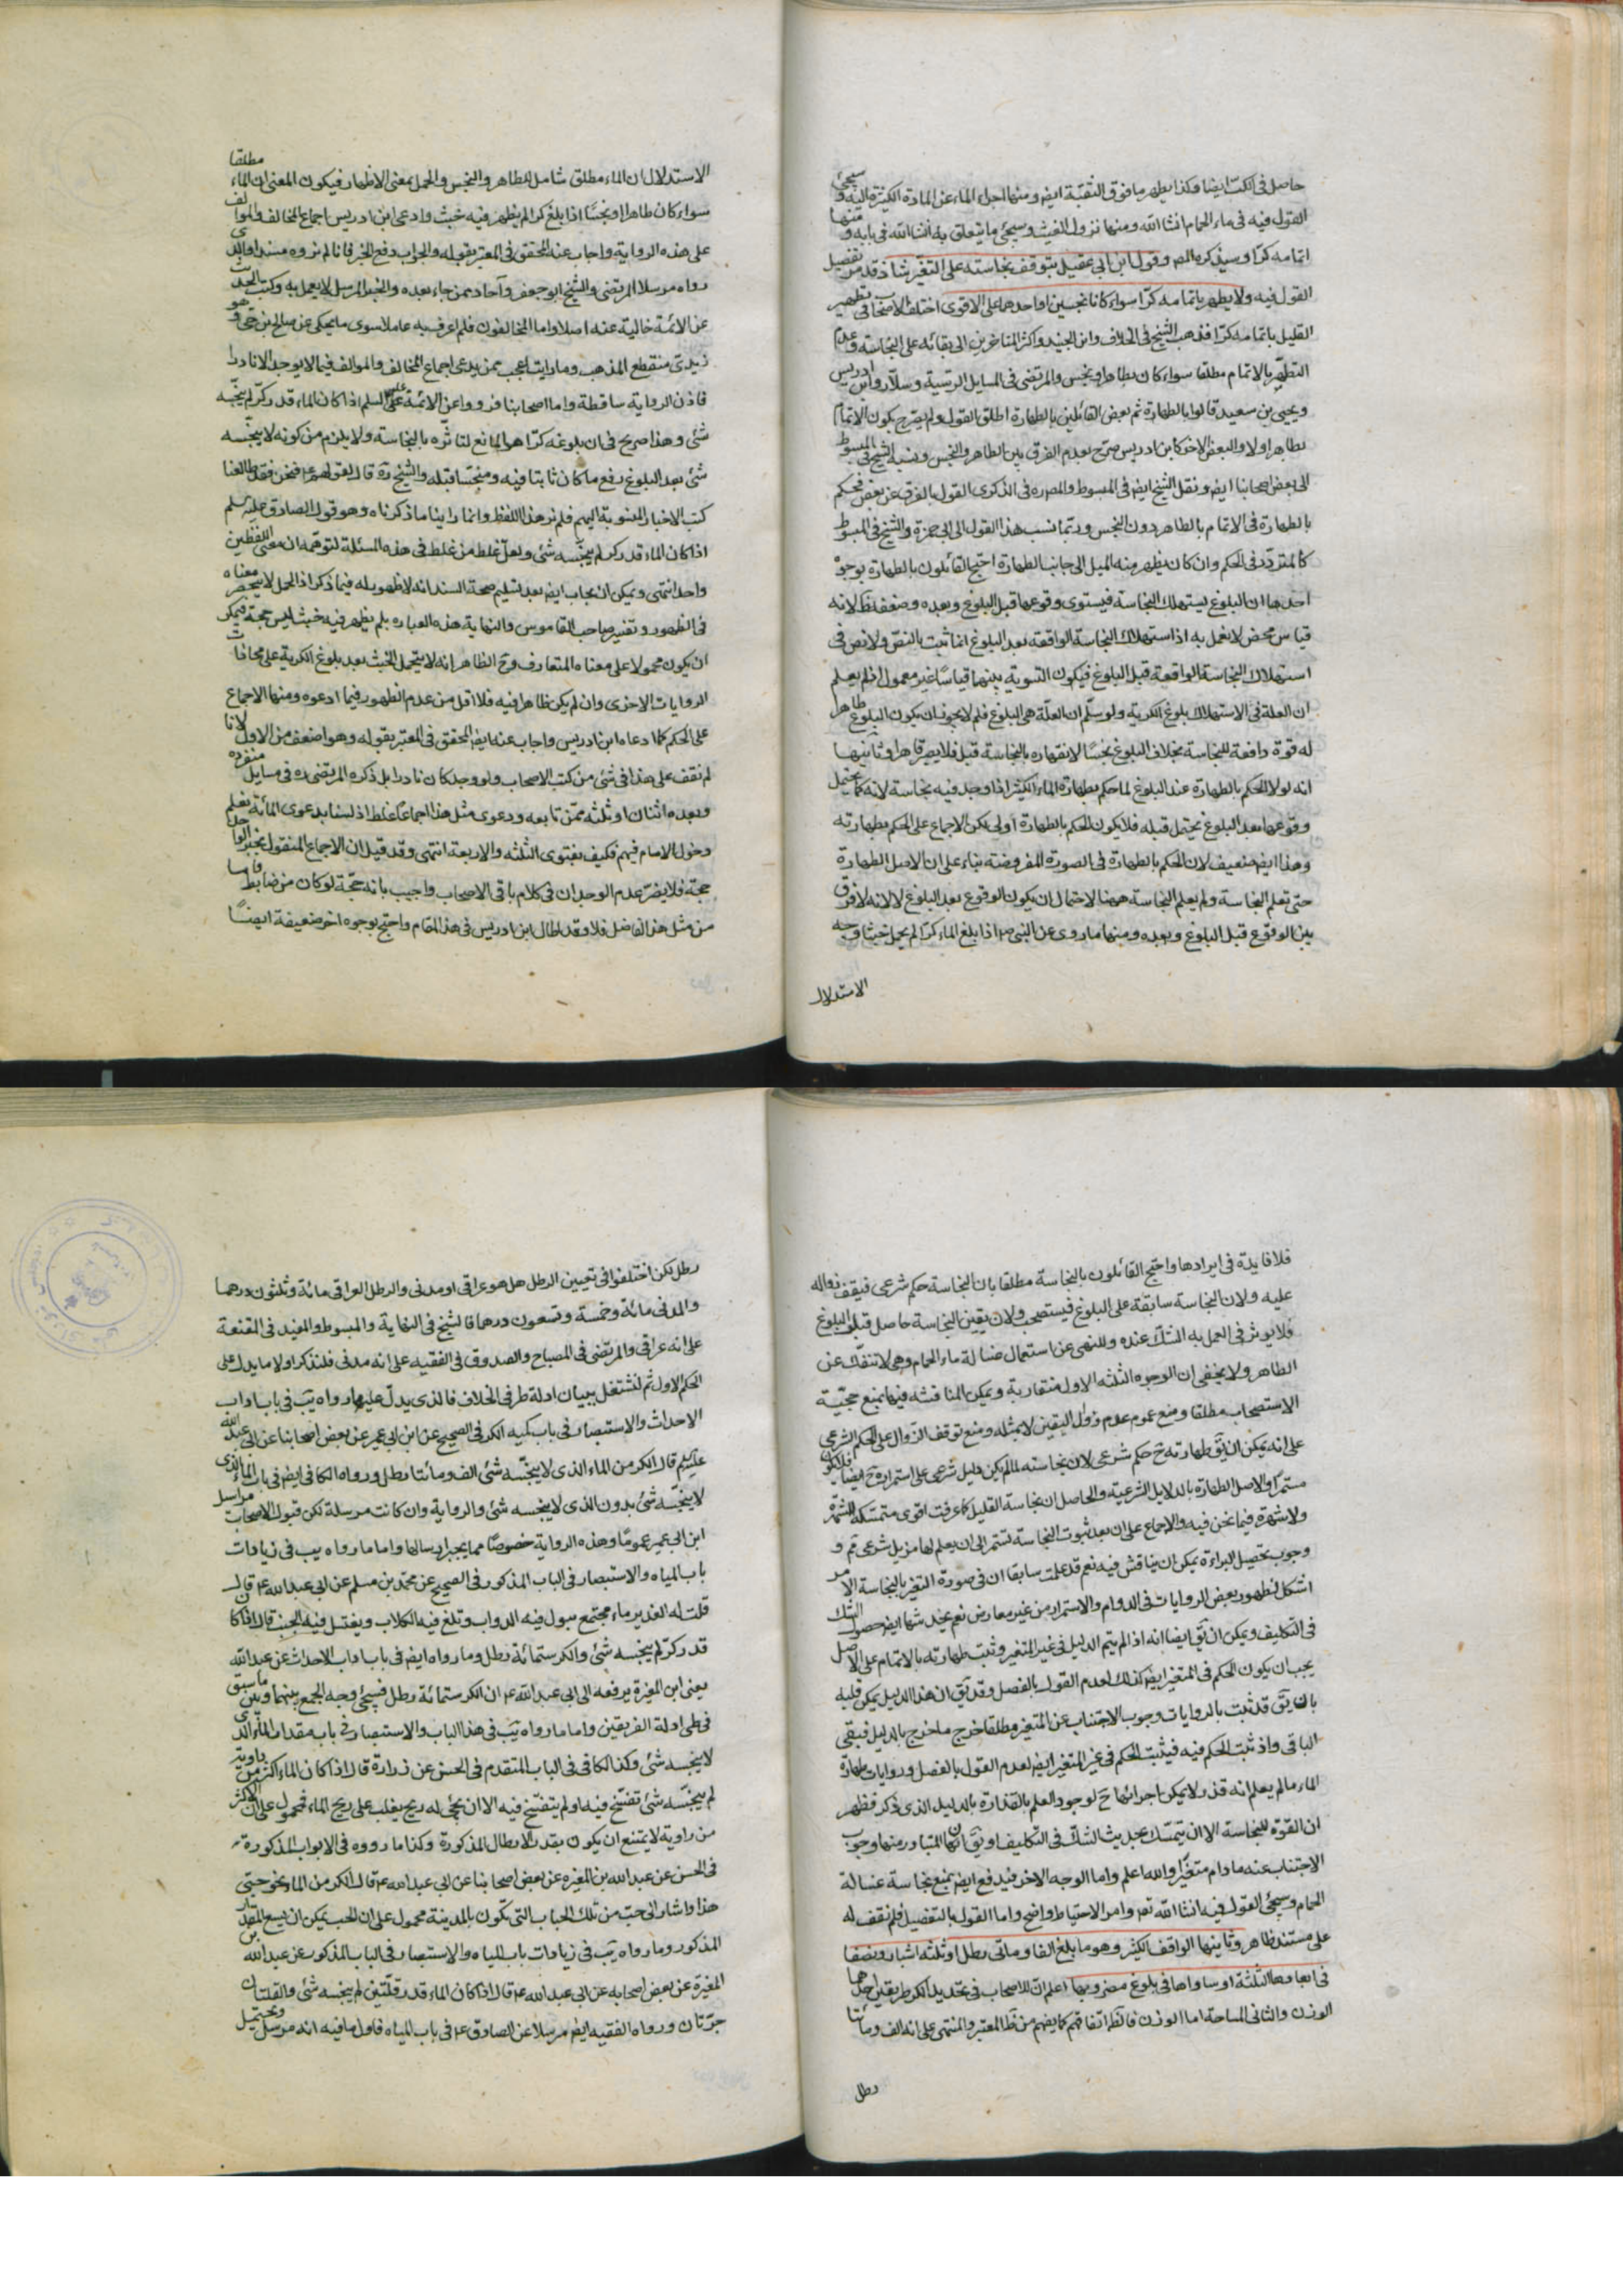 حاصل فى الكت ايضا وكذا يطهر ما فوق النقبة ايض ومنها اجراء الماء عن المادة الكثيرة اليه وسيجئ
القول فيه فى ماء الحمام انشا الله ومنها نزول الغيث وسيجئ ما يتعلق به انشا الله فى بابه ومنها
اتمامه كرّا وسيذكره المص وقول ابن ابى عقيل بتوقف نجاسته على التغيّر شاذ قد مر تفصيل
القول فيه ولا يطهر باتمامه كرّا سواء كانا نجسين او احدهما على الاقوى اختلف الاصحاب فى تطهير
القليل باتمامه كرّا فذهب الشيخ فى الخلاف وابن الجنيد واكثر المتاخرين الى بقائه على النجاسة وعدم
التطهّر بالاتمام مطلقا سواء كان بطاهر او نجس والمرتضى فى المسايل الرسّية وسلّار وابن ادريس
ويحيى بن سعيد قالوا بالطهارة ثم بعض القائلين بالطهارة اطلق القول ولم يصرح بكون الاتمام
بطاهر او لا والبعض الاخر كابن ادريس صرّح بعدم الفرق بين الطاهر والنجس ونسبه الشيخ فى المبسوط
الى بعض اصحابنا ايض ونقل الشيخ ايض فى المبسوط والمص ره فى الذكرى القول بالفرق عن بعض فحكم
بالطهارة فى الاتمام بالطاهر دون النجس وربّما نسب هذا القول الى ابى حمزة والشيخ فى المبسوط
كالمتردّد فى الحكم وان كان يظهر منه الميل الى جانب الطهارة احتج القائلون بالطهارة بوجوه
احدها ان البلوغ يستهلك النجاسة فيستوى وقوعها قبل البلوغ وبعده وضعفه ظ لانه
قياس محض لا نعمل به اذ استهلاك النجاسة الواقعة بعد البلوغ انما ثبت بالنصّ ولا نص فى
استهلاك النجاسة الواقعة قبل البلوغ فيكون التسوية بينهما قياسًا غير معمول اذ لم يعلم
ان العلة فى الاستهلاك بلوغ الكرية ولو سلّم ان العلّة هى البلوغ فلم لا يجوز ان يكون البلوغ طاهرا
له قوة دافعة للنجاسة بخلاف البلوغ نجسًا لانقهاره بالنجاسة قبل فلا يصير قاهرا وثانيها
انه لولا الحكم بالطهارة عند البلوغ لما حكم بطهارة الماء الكثير اذا وجد فيه نجاسة لانه كما يحتمل
وقوعها بعد البلوغ تحتمل قبله فلا يكون الحكم بالطهارة اولى لكن الاجماع على الحكم بطهارته
وهذا ايض ضعيف لان الحكم بالطهارة فى الصورة المفروضة بناء على ان الاصل الطهارة
حتى تعلم النجاسة ولم يعلم النجاسة ههنا لاحتمال ان يكون الوقوع بعد البلوغ لا لانه لا فرق
بين الوقوع قبل البلوغ وبعده ومنها ما روى عن النبى ص اذا بلغ الماء كرّا لم يحمل خبثا وجه
الاستدلال
الاستدلال ان الماء مطلق شامل للطاهر والنجس والحمل بمعنى الاظهار فيكون المعنى ان الماء مطلقا
سواء كان طاهرا او نجسًا اذا بلغ كرا لم يظهر فيه خبث وادعى ابن ادريس اجماع المخالف والموالف
على هذه الرواية واجاب عنه المحقق فى المعتبر بقوله والجواب دفع الخبر فانا لم نروه مسندا والذى
رواه مرسلا المرتضى والشيخ ابو جعفر وآحاد ممن جاء بعده والخبر المرسل لا يعمل به وكتب الحديث
عن الائمة خالية عنه اصلا واما المخالفون فلم اعرف به عاملا سوى ما يحكى عن صالح بن حى وهو
زيدى منقطع المذهب وما رايت اعجب ممن يدعى اجماع المخالف والموالف فيما لا يوجد الا نادرا
فاذن الرواية ساقطة واما اصحابنا فرووا عن الائمة عليهم السلم اذا كان الماء قدر كرّ لم ينجّسه
شئ وهذا صريح فى ان بلوغه كرّا هو المانع لتاثّره بالنجاسة ولا يلزم من كونه لا ينجّسه
شئ بعد البلوغ رفع ما كان ثابتا فيه ومنجّسا قبله والشيخ ره قال لقولهم ع فنحن فقد طالعنا
كتب الاخبار المنسوبة اليهم فلم نر هذا اللفظ وانما راينا ما ذكرناه وهو قول الصادق عليه السلم
اذا كان الماء قدر كر لم ينجّسه شئ ولعلّ غلط من غلط فى هذه المسئلة لتوهّمه ان معنى اللفظين
واحد انتهى ويمكن ان يجاب ايض بعد تسليم صحة السند انه لا ظهور له فيما ذكر اذ الحمل لا ينحصر معناه
فى الظهور وتفسير صاحب القاموس والنهاية هذه العبارة بلم يظهر فيه خبث ليس حجة فيمكن
ان يكون محمولا على معناه المتعارف وح الظاهر انه لا يتحمل الخبث بعد بلوغ الكرية على محاذات
الروايات الاخرى وان لم يكن ظاهرا فيه فلا اقل من عدم الظهور فيما ادعوه ومنها الاجماع
على الحكم كما ادعاه ابن ادريس واجاب عنه ايض المحقق فى المعتبر بقوله وهو اضعف من الاول لانا
لم نقف على هذا فى شئ من كتب الاصحاب ولو وجد كان نادرا بل ذكره المرتضى ره فى مسايل منفرده
وبعده اثنان او ثلثة ممّن تابعه ودعوى مثل هذا اجماعًا غلط اذ لسنا بدعوى المائة نعلم
دخول الامام فيهم فكيف بفتوى الثلثه والاربعة انتهى وقد قيل ان الاجماع المنقول بخبر الواحد
حجة فلا يضرّ عدم الوجدان فى كلام باقى الاصحاب واجيب بانه حجّة لو كان من ضابط واما
من مثل هذا الفاضل فلا وقد اطال ابن ادريس فى هذا المقام واحتج بوجوه اخر ضعيفة ايضًا
فلا فايدة فى ايرادها واحتج القائلون بالنجاسة مطلقا بان النجاسة حكم شرعى فيقف زواله
عليه ولان النجاسة سابقة على البلوغ فيستصحب ولان يقين النجاسة حاصل قبل البلوغ
فلا يوثر فى العمل به الشك عنده وللنهى عن استعمال غسالة ماء الحمام وهى لا تنفكّ عن
الطاهر ولا يخفى ان الوجوه الثلثه الاول متقاربة ويمكن المناقشه فيها بمنع حجيّة
الاستصحاب مطلقا ومنع عموم عدم زوال اليقين لا بمثله ومنع توقف الزوال على الحكم الشرعى
على انه يمكن ان يق طهارته ح حكم شرعى لان نجاسته لما لم يكن دليل شرعى على استمراره ح ايضا فلا يكون
مستمرا والاصل الطهارة بالدلايل الشرعية والحاصل ان نجاسة القليل كما عرفت اقوى متمسّكه الشهرة
ولا شهرة فيما نحن فيه والاجماع على ان بعد ثبوت النجاسة تستمر الى ان يعلم لها مزيل شرعى ثم و
وجوب تحصيل البراءة يمكن ان يناقش فيه نعم قد علمت سابقا ان فى صورة التغير بالنجاسة الامر
اشكل لظهور بعض الروايات فى الدوام والاستمرار من غير معارض نعم يخدشها ايض حصول الشك
فى التكليف ويمكن ان يق ايضا انه اذا لم يتم الدليل فى غير المتغير وثبت طهارته بالاتمام على الاصل
يجب ان يكون الحكم فى المتغير ايض كذلك لعدم القول بالفصل وقد يق ان هذا الدليل يمكن قلبه
بان يق قد ثبت بالروايات وجوب الاجتناب عن المتغير مطلقا خرج ما خرج بالدليل فبقى
الباقى واذ ثبت الحكم فيه فيثبت الحكم فى غير المتغير ايض لعدم القول بالفصل وروايات طهارة
الماء ما لم يعلم انه قذر لا يمكن اجرائها ح لوجود العلم بالقذارة بالدليل الذى ذكر فظهر
ان القوّة للنجاسة الا ان يتمسّك بحديث الشكّ فى التكليف او يق ان المتبادر منها وجوب
الاجتناب عنه ما دام متغيّرا والله اعلم واما الوجه الاخر فيدفع ايض بمنع نجاسة غسالة
الحمام وسيجئ القول فيه انشا الله تع وامر الاحتياط واضح واما القول بالتفصيل فلم نقف له
على مستند ظاهر وثانيها الواقف الكثير وهو ما بلغ الفا ومائتى رطل او ثلثه اشبار ونصفا
فى ابعادها الثلثة او ساواها فى بلوغ مضروبها اعلم انّ للاصحاب فى تحديد الكر طريقين احدهما
الوزن والثانى المساحة اما الوزن فالظ اتفاقهم كما يفهم من ظ المعتبر والمنتهى على انه الف ومائتا
رطل
رطل لكن اختلفوا فى تعيين الرطل هل هو عراقى او مدنى والرطل العراقى مائة وثلثون درهما
والمدنى مائة وخمسة وتسعون درهما فالشيخ فى النهاية والمبسوط والمفيد فى المقنعة
على انه عراقى والمرتضى فى المصباح والصدوق فى الفقيه على انه مدنى فلنذكر اولا ما يدل على
الحكم الاول ثم لنشتغل ببيان ادلة طرفى الخلاف فالذى يدلّ عليه ما رواه يب فى باب اداب
الاحداث والاستبصار فى باب كمية الكر فى الصحيح عن ابن ابى عمير عن بعض اصحابنا عن ابى عبد الله
عليه السلم قال الكر من الماء الذى لا ينجّسه شئ الف ومائتا رطل ورواه الكافى ايض فى باب الماء الذى
لا ينجّسه شئ بدون الذى لا ينجسه شئ والرواية وان كانت مرسلة لكن قبول الاصحاب مراسيل
ابن ابى عمير عمومًا وهذه الرواية خصوصًا مما يجبر ارسالها واما ما رواه يب فى زيادات
باب المياه والاستبصار فى الباب المذكور فى الصحيح عن محمّد بن مسلم عن ابى عبد الله ع قال
قلت له الغدير ماء مجتمع تبول فيه الدواب وتلغ فيه الكلاب ويغتسل فيه الجنب قال اذا كان
قدر كرّ لم ينجسه شئ والكر ستمائة رطل وما رواه ايض فى باب اداب الاحداث عن عبد الله
يعنى ابن المغيرة يرفعه الى ابى عبد الله ع ان الكر ستمائة رطل فسيجئ وجه الجمع بينهما وبين ما سبق
فى طى ادلة الفريقين واما ما رواه يب فى هذا الباب والاستبصار فى باب مقدار الماء الذى
لا ينجسه شئ وكذا الكافى فى الباب المتقدم فى الحسن عن زرارة قال اذا كان الماء اكثر من راوية
لم ينجّسه شئ تفسّخ فيه او لم يتفسّخ فيه الا ان يجئ له ريح يغلب على ريح الماء فمحمول على ان الاكثر
من راوية لا يمتنع ان يكون بقدر الارطال المذكورة وكذا ما رووه فى الابواب المذكورة
فى الحسن عن عبد الله بن المغيرة عن بعض اصحابنا عن ابى عبد الله ع قال الكر من الماء نحو حبّى
هذا واشار الى حبّ من تلك الحباب التى تكون بالمدينة محمول على ان الحب يمكن ان يسع المقدار
المذكور وما رواه يب فى زيادات باب المياه والاستبصار فى الباب المذكور عن عبد الله بن
المغيرة عن بعض اصحابه عن ابى عبد الله ع قال اذا كان الماء قدر قلّتين لم ينجسه شئ والقلتان
جرّتان ورواه الفقيه ايض مرسلا عن الصادق ع فى باب المياه فاول ما فيه انه مرسل ويحتمل